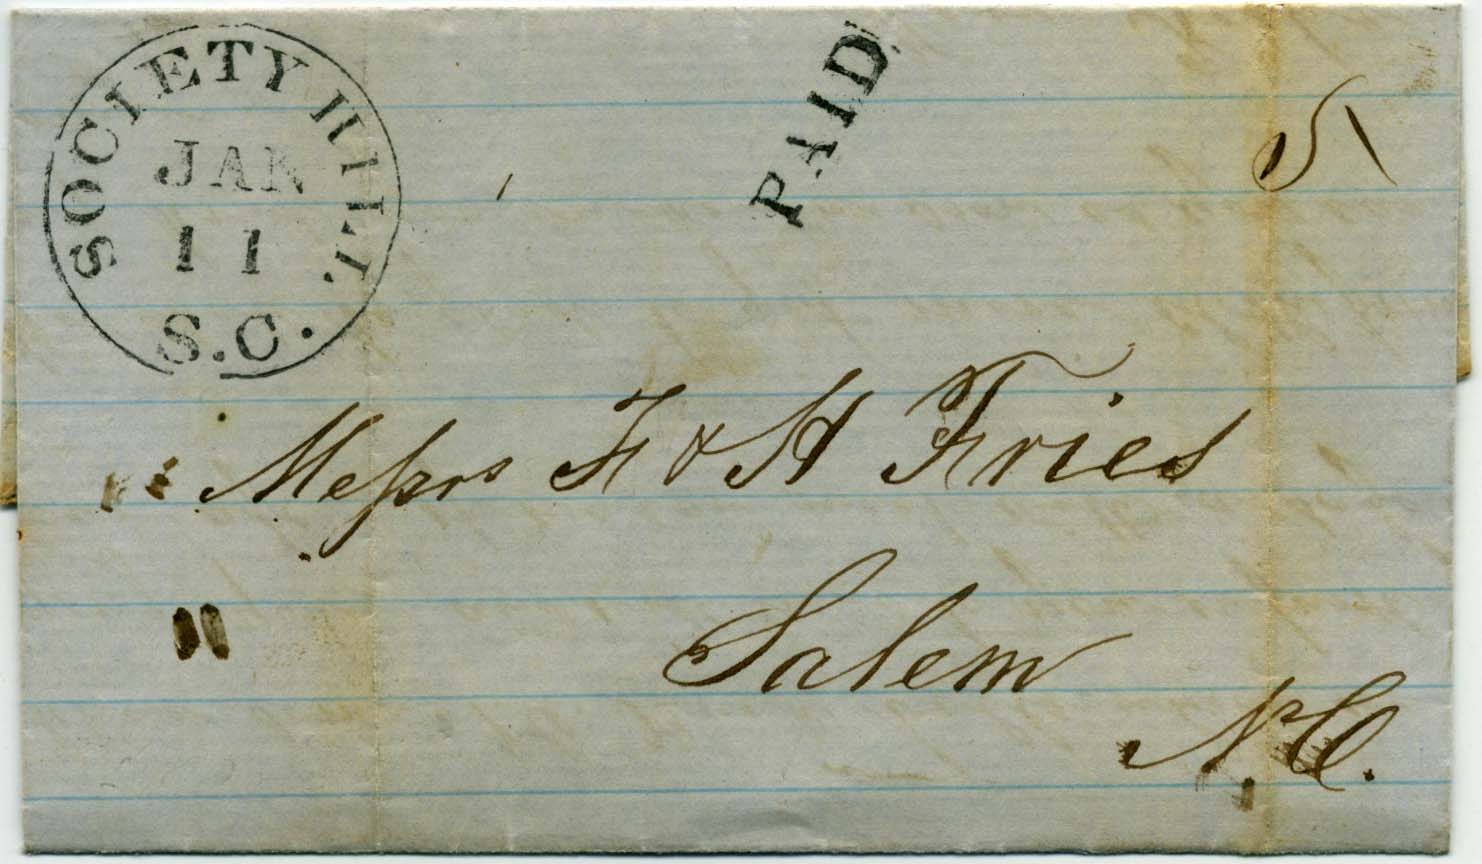 SOCIETY HILL
JAN
11
S.C.
PAID
5
Messrs F & H Fries
Salem
N.C.